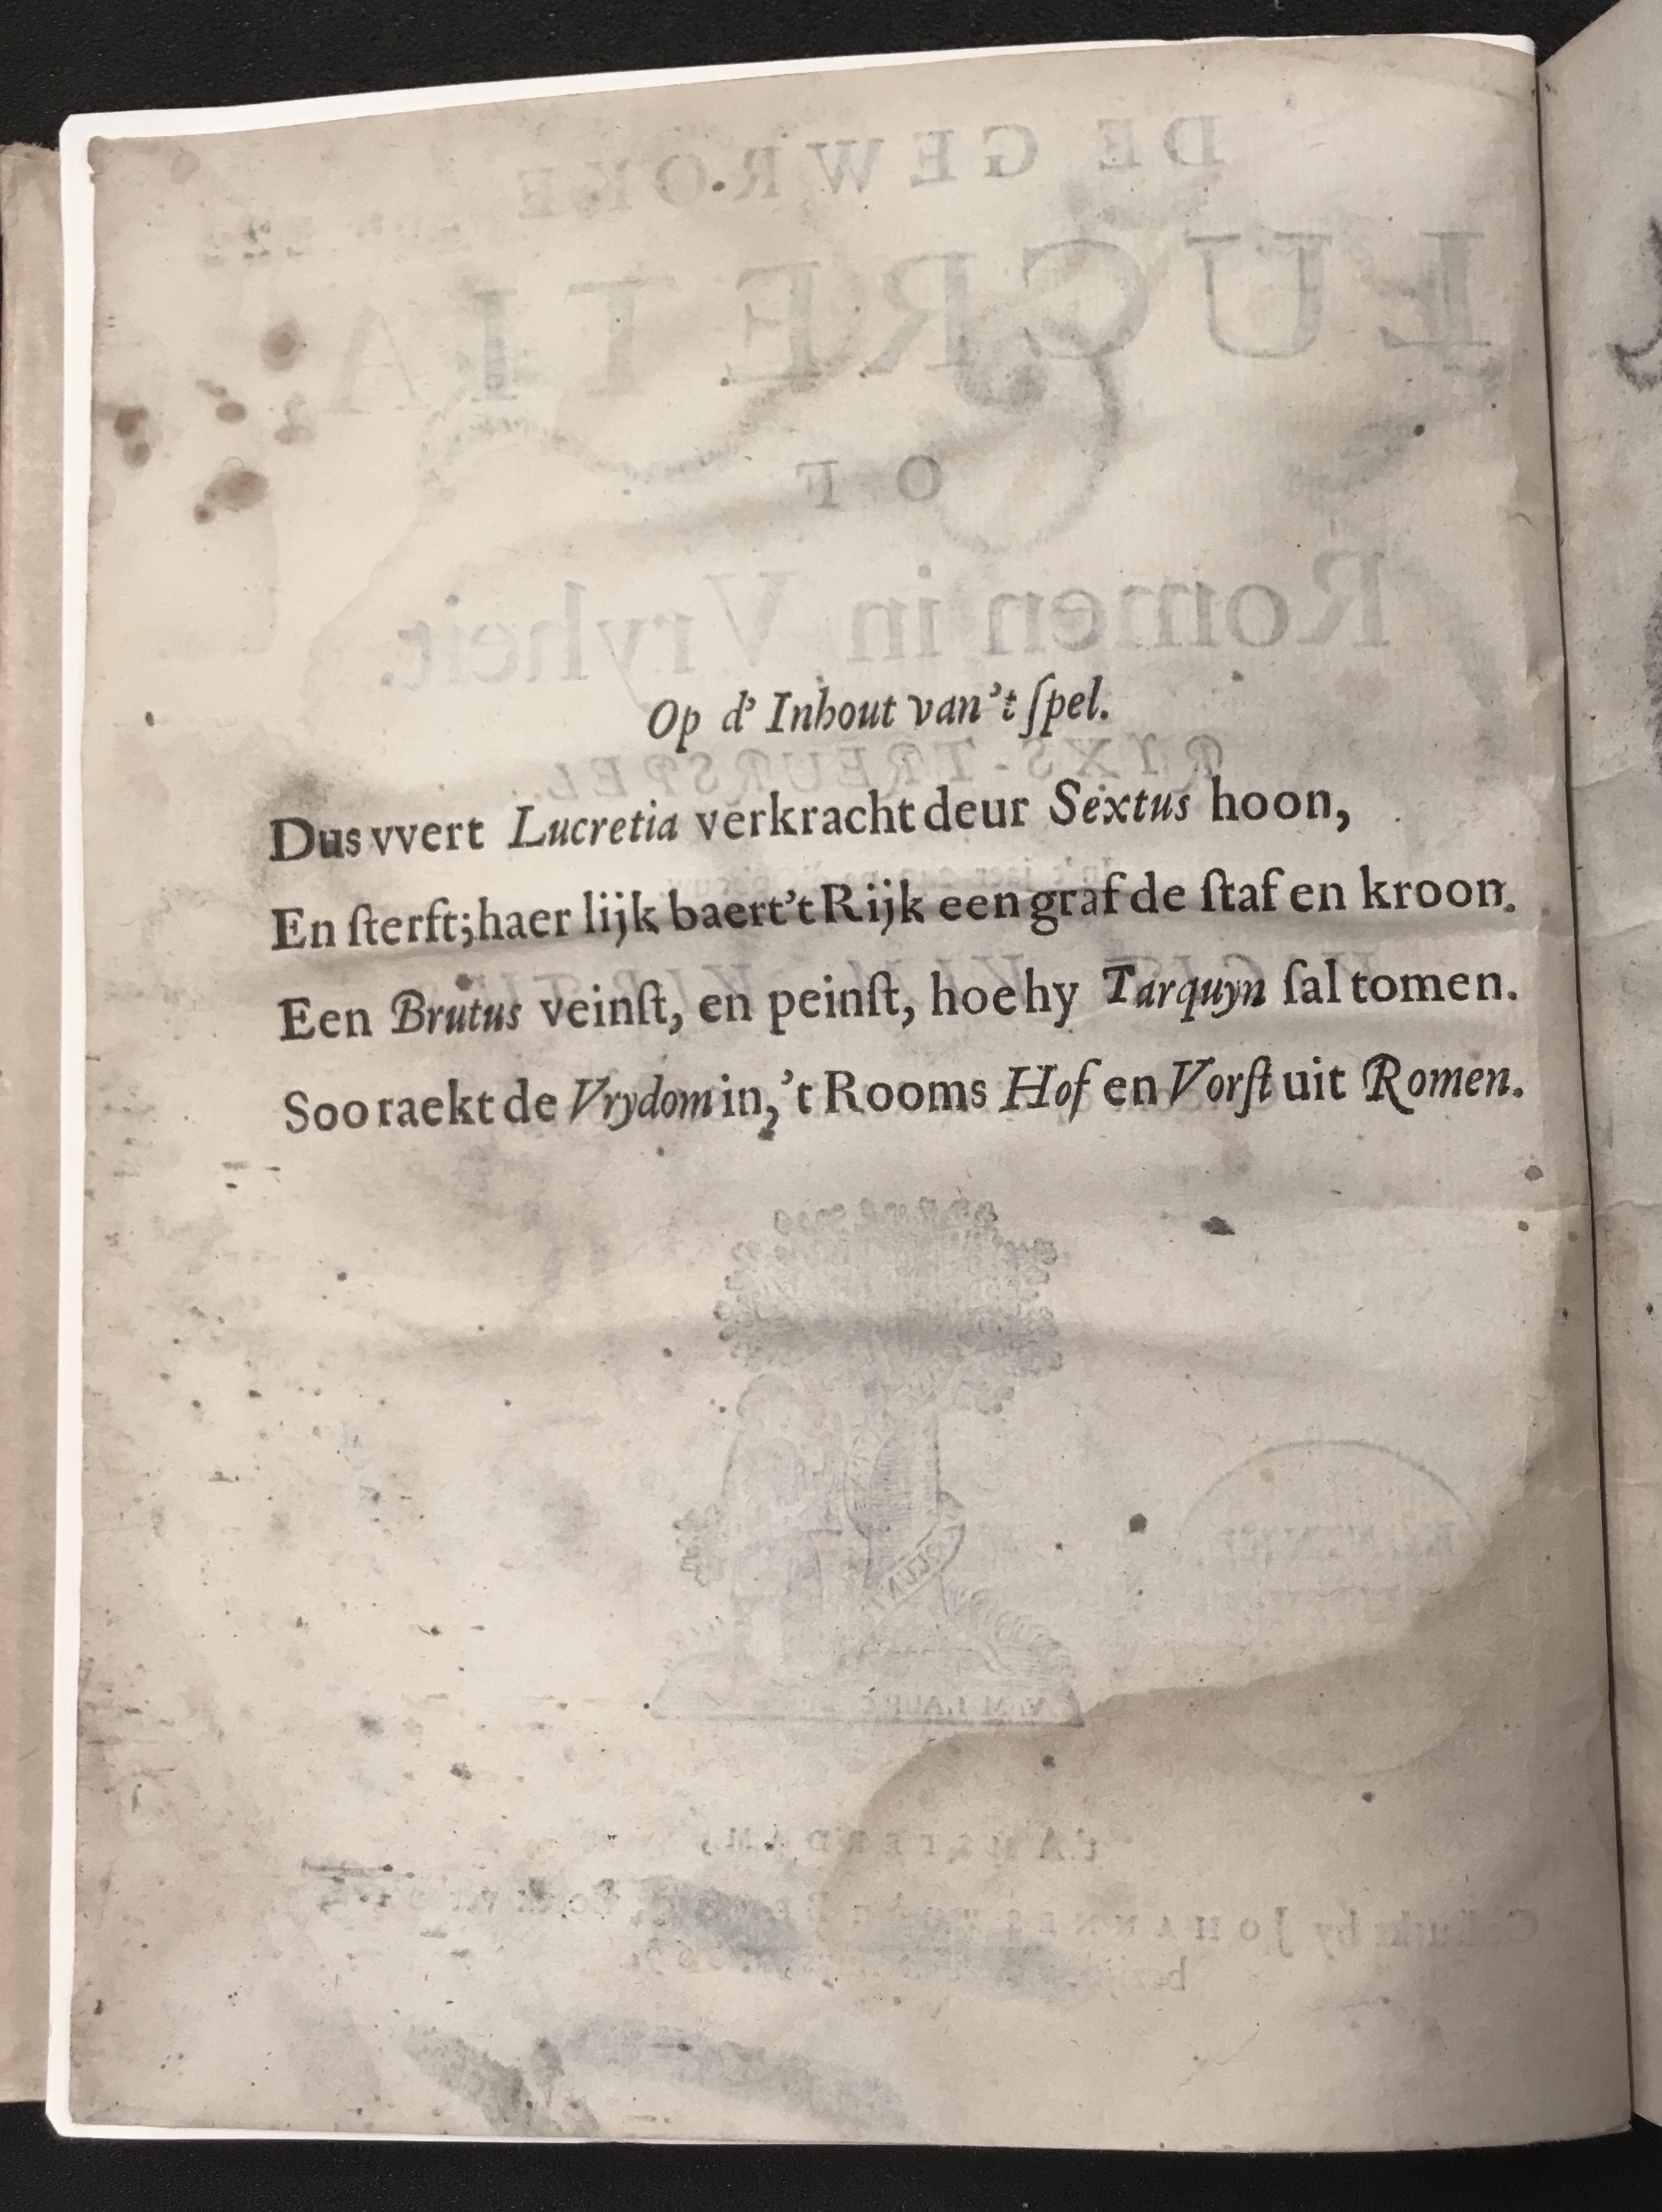 Op d' Inhout van't ſpel.
Dus vvert Lucretia verkracht deur Sextus hoon,
En ſterft; haer lijk baert't Rijk een graf de ſtaf en kroon.
Een Brutus veinſt, en peinſt, hoe hy Tarquyn ſal tomen.
Soo raekt de Vrydom in, 't Rooms Hof en Vorſt uit Romen.